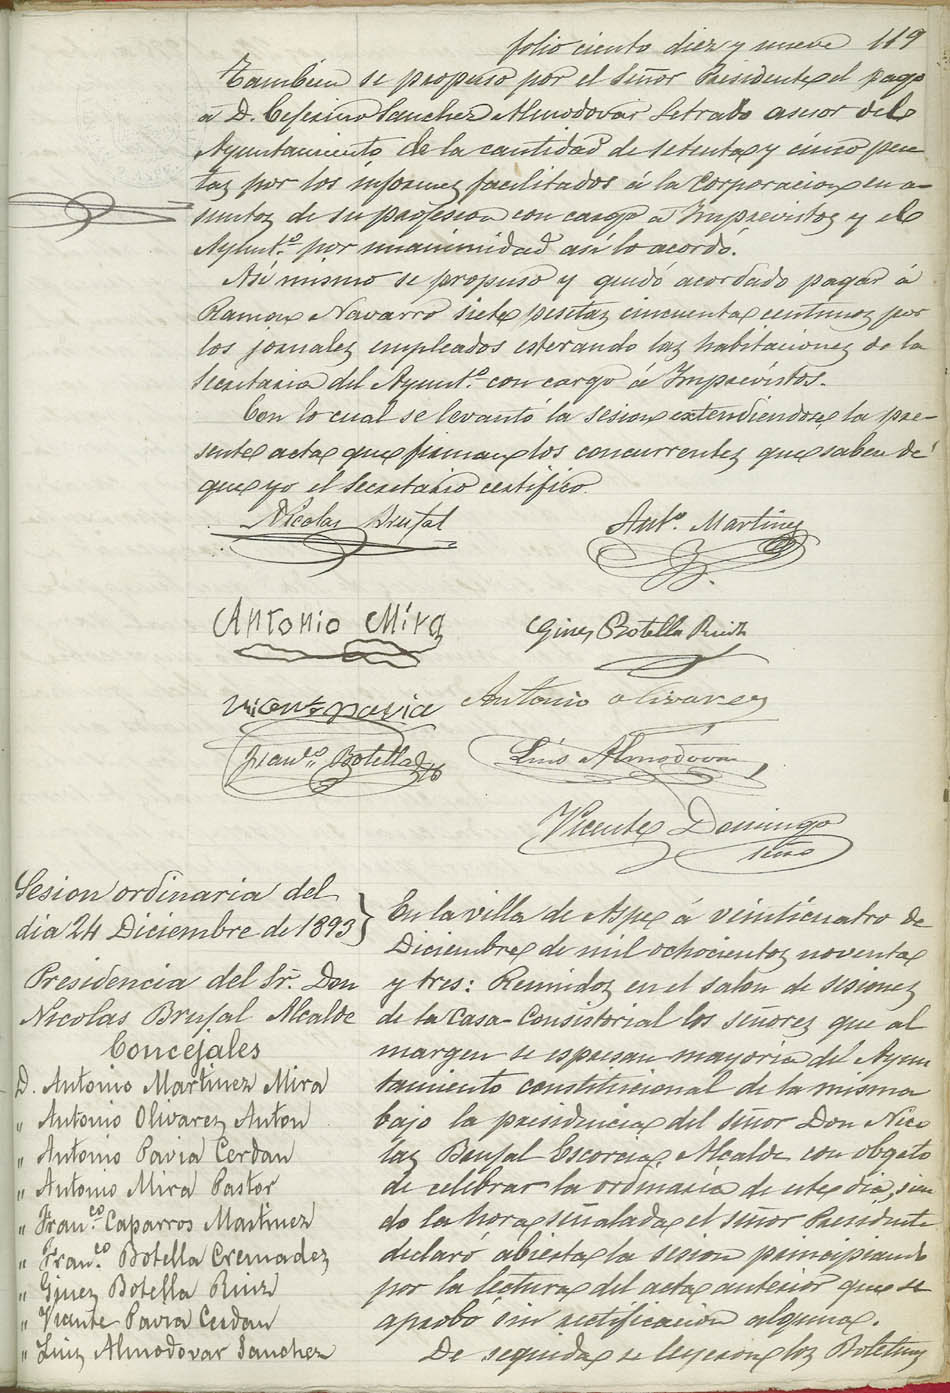 folio ciento diez y nueve 119
Tambien se propuso por el Señor Presidente el pago
á D. Ceferino Sanchez Almodovar Letrado asesor del
Ayuntamiento de la cantidad de setenta y cinco pese
tas por los informes facilitados á la Corporacion en a-
suntos de su profesion con cargo á Imprevistos y el
Ayunt.º por unanimidad así lo acordó.
Así mismo se propuso y quedó acordado pagar á
Ramon Navarro siete pesetas cincuenta centimos por
los jornales empleados esterando las habitaciones de la
Secretaria del Ayunt.º con cargo á Imprevistos.
Con lo cual se levantó la sesion extendiendose la pre-
sente acta que firman los concurrentes que saben de
que yo el Secretario certifico.
Nicolas Brufal
Ant.º Martinez
Antonio Mira
Gines Botella Ruiz
Vicente pavia
Antonio olivares
Fran.co Botella
Luis Almodóvar
Vicente Domingo
srio
Sesion ordinaria del
dia 24 Diciembre de 1893
Presidencia del Sr. Don
Nicolas Brufal Alcalde
Concejales
D. Antonio Martinez Mira
" Antonio Olivares Anton
" Antonio Pavia Cerdan
" Antonio Mira Pastor
" Fran.co Caparros Martinez
" Fran.co Botella Cremadez
" Ginez Botella Ruiz
" Vicente Pavia Cerdan
" Luiz Almodovar Sanchez
En la villa de Aspe á veinticuatro de
Diciembre de mil ochocientos noventa
y tres: Reunidos en el salon de sesiones
de la Casa-Consistorial los señores que al
margen se espresan mayoria del Ayun
tamiento constitucional de la misma
bajo la presidencia del señor Don Nico
las Brufal Escorcia, Alcalde con obgeto
de celebrar la ordinaria de este dia, sien
do la hora señalada el señor Presidente
declaró abierta la sesion principiando
por la lectura del acta anterior que se
aprobó sin rectificacion alguna.
De seguida se leyeron los Boletines